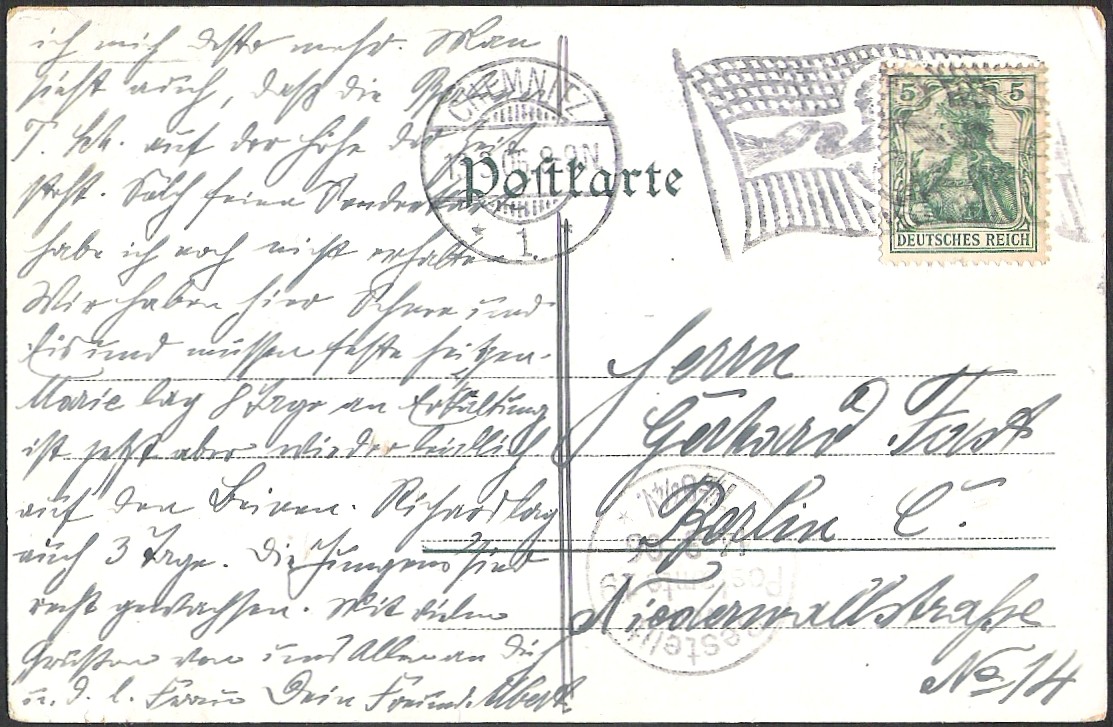 ich mich desto mehr. Man
sieht auch, daß die
T. Sch. auf der Höhe der Zeit
steht. Solch feine Sonderkarte
habe ich noch nicht erhalten.
Wir haben hier Schnee und
Eis und müssen feste heitzen.
Marie lag 8 Tage an Erkältung
ist jetzt aber wieder leidlich
auf den Beinen. Richard lag
auch 3 Tage. Die Jungens sind
recht gewachsen. Mit vielen
Grüßen von uns Allen an Dich
u. d. l. Frau Dein Freund Albert
CHEMNITZ
8-9N
* 1. *
Postkarte
5 5
DEUTSCHES REICH
Herrn
Gerhard Fast
Berlin C.
Niederwallstraße
No 14
Bestellt
Postamte 19